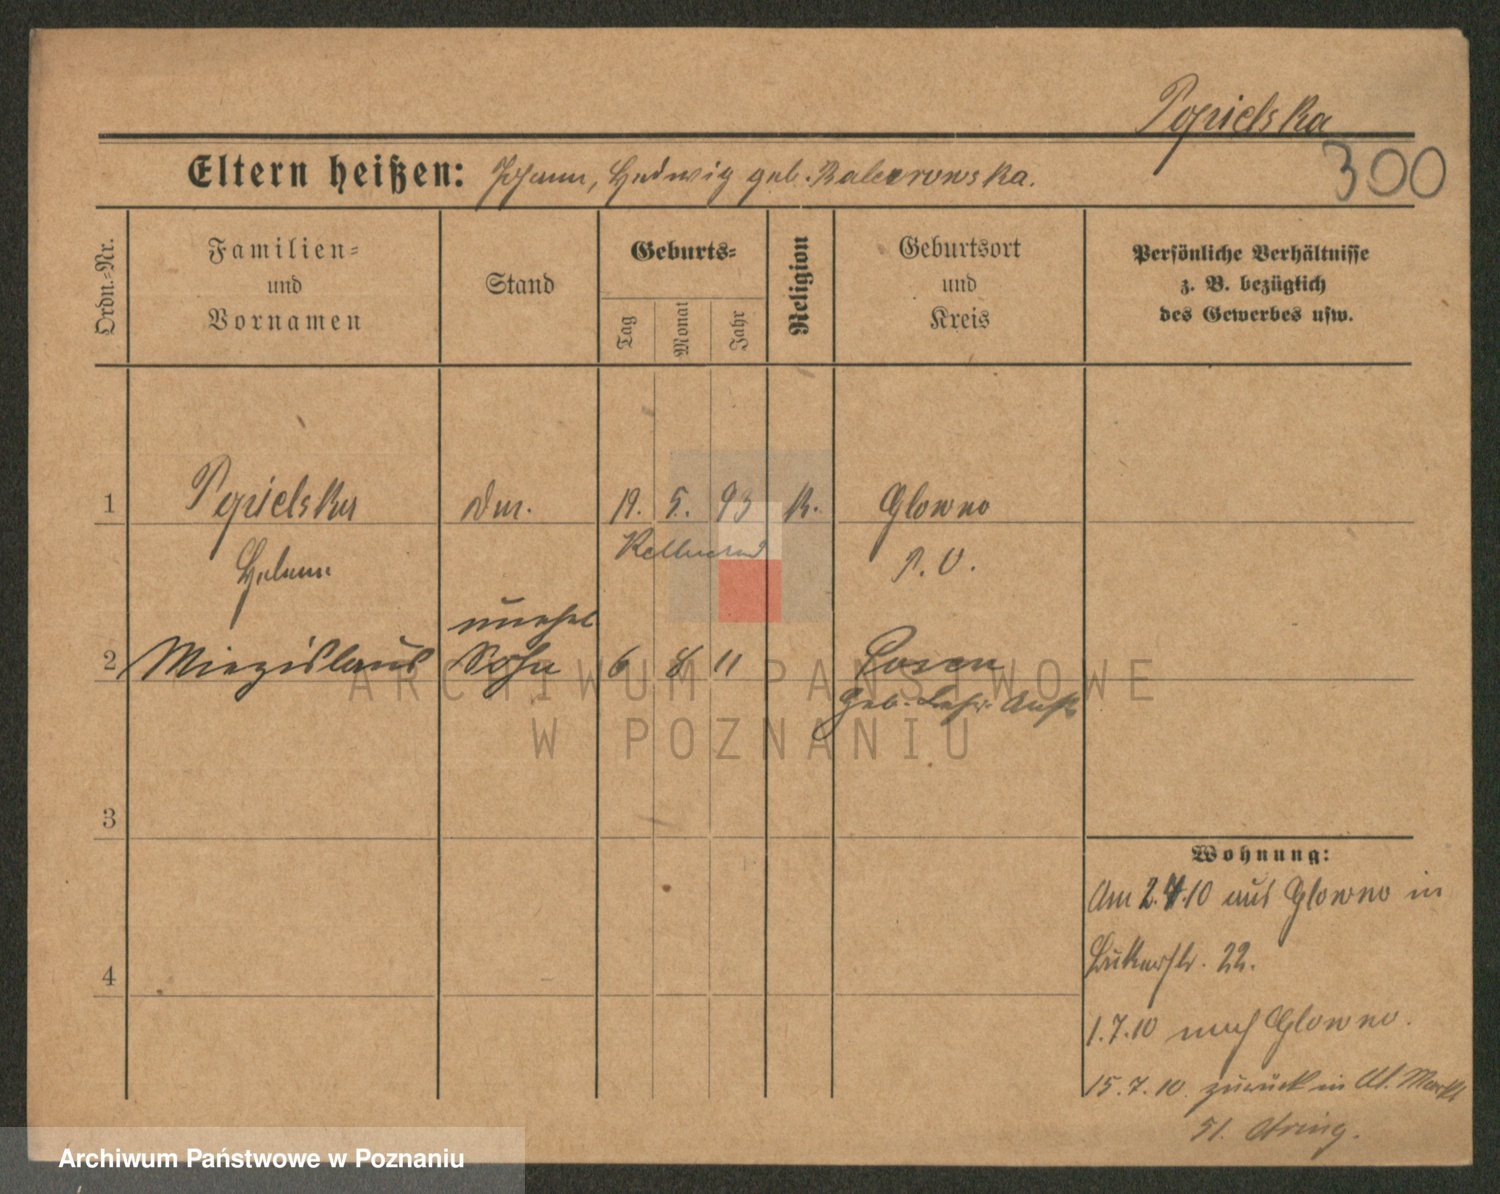 Popielska
300
Eltern heißen: Johann, Hedwig geb.
Ordn.-Nr.
Familien- und Vornamen
Stand
Geburts-
Tag
Monat
Jahr
Religion
Geburtsort und Kreis
Persönliche Verhältnisse
z. B. bezüglich
des Gewerbes usw.
1 Popielska 19. 5. 93 K. Glowno
Helene P. O.
unehel
2 Miezislaus Sohn 6 8 11 Posen
Geb.
3
4
Wohnung:
Am 2.4.10 aus Glowno in
22.
1.7.10 nach Glowno.
15.7.10. zurück in Alt. Markt
51.
ARCHIWUM PAŃSTWOWE
W POZNANIU
Archiwum Państwowe w Poznaniu